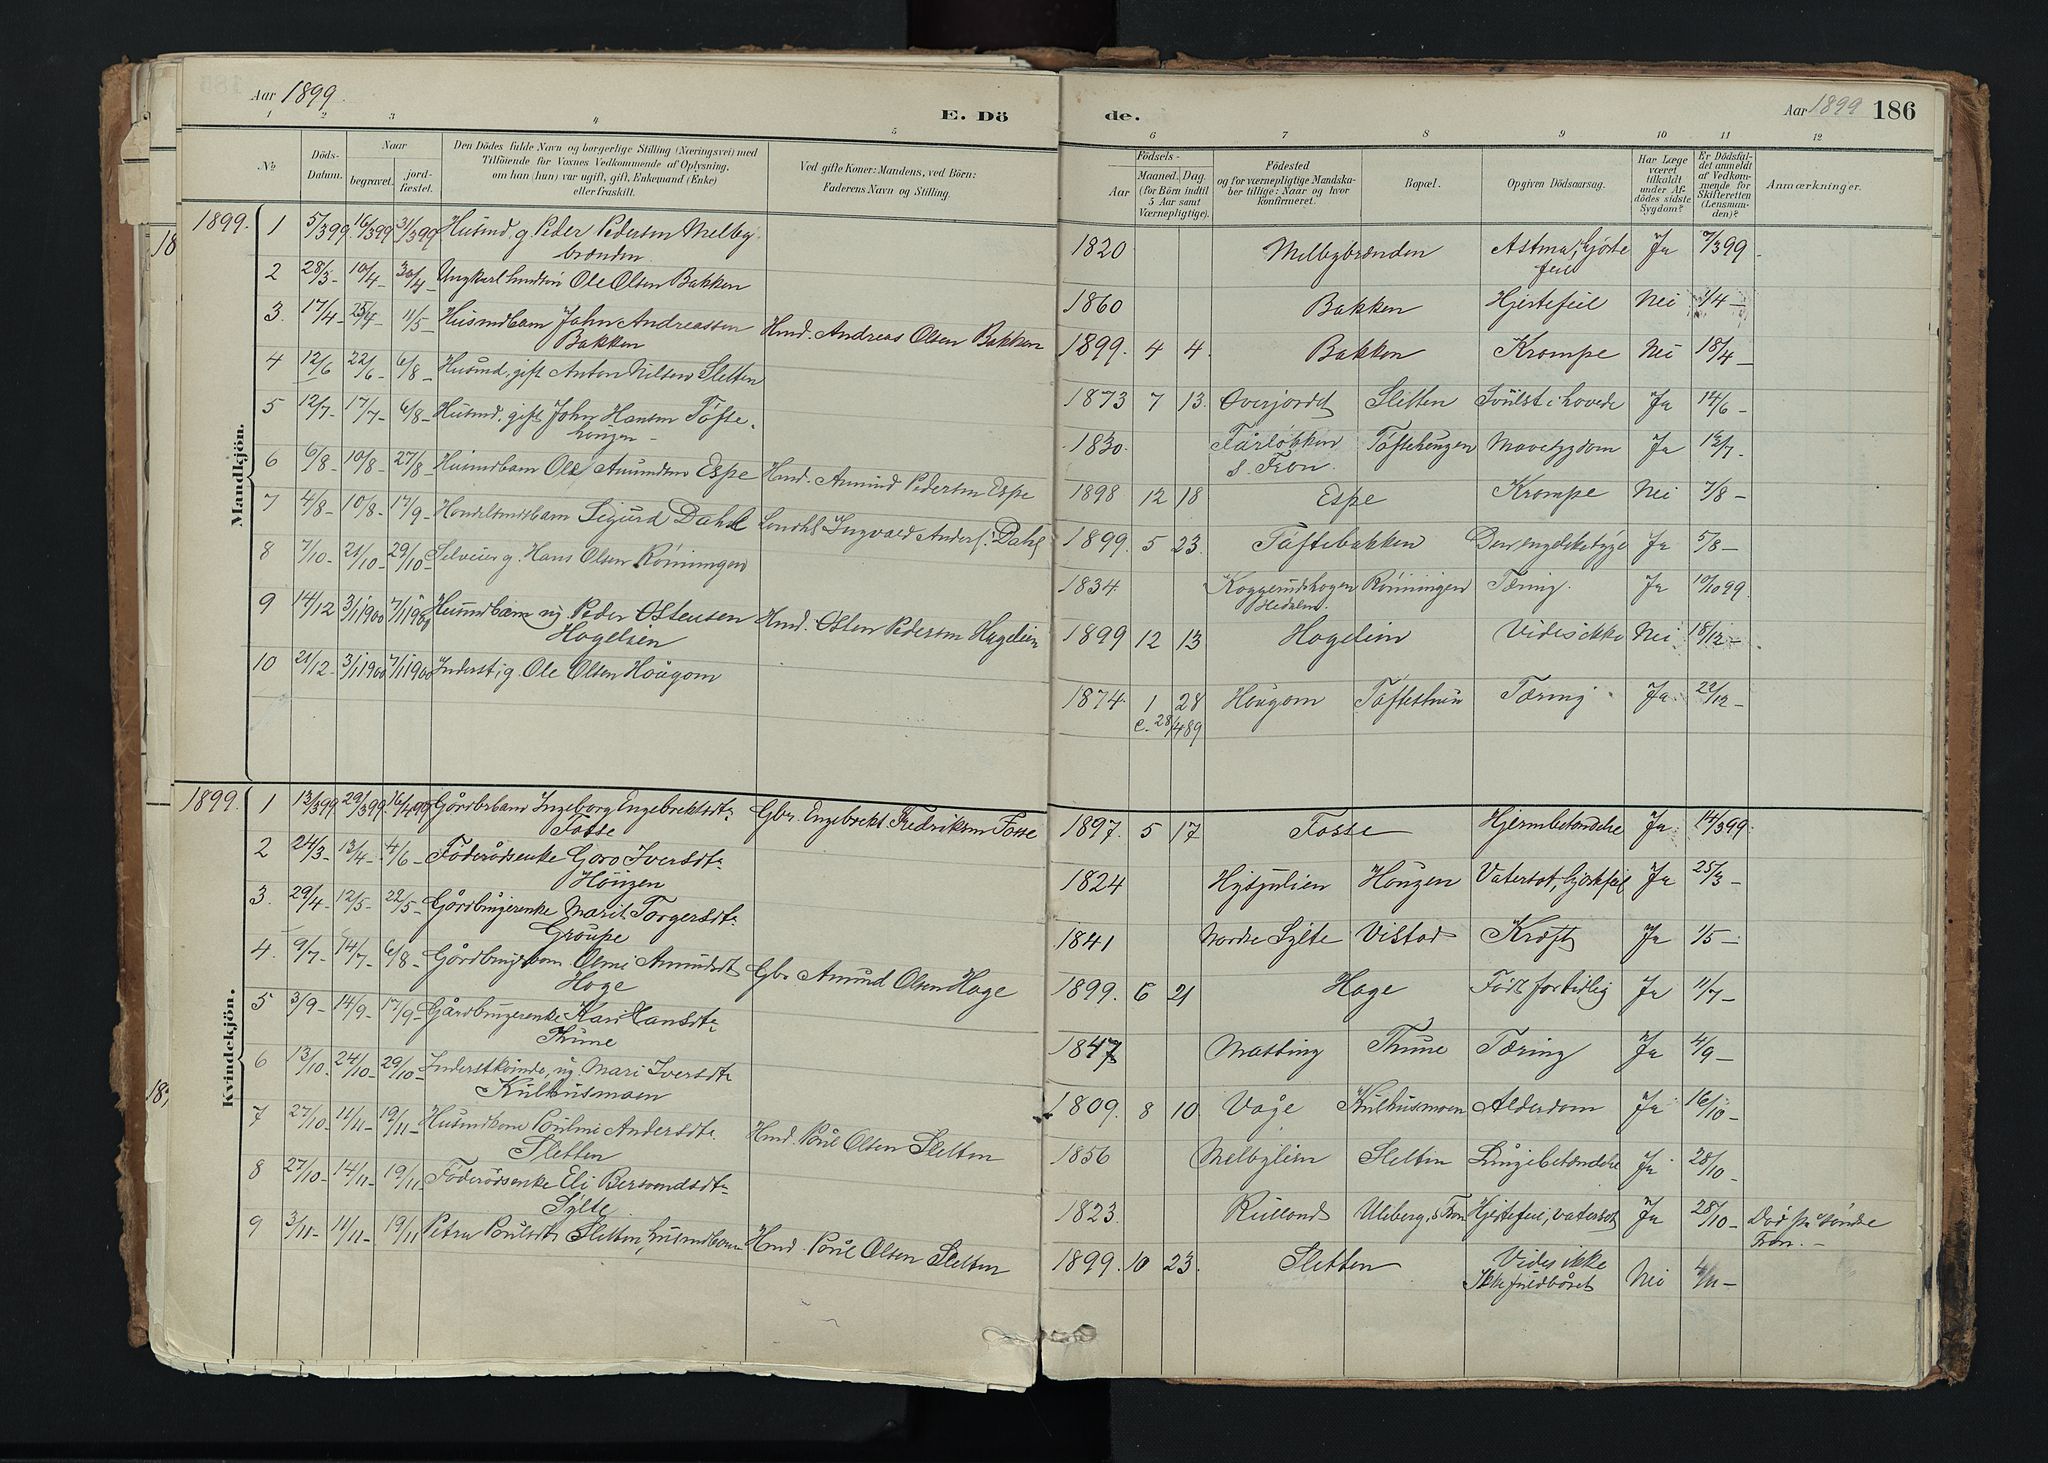 Aar 1899.
E. Dö
de.
Aar 1899 186
1 2 3 4 5 6 7 8 9 10 11 12
No.
Döds-Datum.
Naar
begravet.
jord-fæstet.
Den Dödes fulde Navn og borgerlige Stilling (Næringsvei) med
Tilföiende for Voxnes Vedkommende af Oplysning,
om han (hun) var ugift, gift, Enkemand (Enke)
eller fraskilt.
Ved gifte Koner: Mandens, ved Börn:
Faderens Navn og Stilling.
Fødsels-
Aar
Maaned. Dag.
(for Börn indtil
5 Aar samt
Værnepligtige).
Födested
og for værnepligtige Mandska-
ber tillige: Naar og hvor
konfirmeret.
Bopæl.
Opgiven Dödsaarsag.
Har Læge
været
tilkaldt
under Af-
dödes sidste
Sygdom?
Er Dödsfal-
det anmeldt
af Vedkom-
mende for
Skifteretten
(Lensman-
den)?
Anmærkninger.
Mandkjön.
1899. 1 5/3 99. 16/3 99 31/3 99 Husmd, g. Peder Pedersen Melby- 1820 Melbybrænden Astma, hjerte Ja 7/3 99
brænden feil
2 28/3- 10/4- 30/4- Ungkarl Ole Olsen Bakken 1860 Bakken Hjertefeil Nei 1/4-
3. 17/4- 25/4- 11/5- Husmdbarn John Andreassen Hmd. Andreas Olsen Bakken 1899. 4 4. Bakken Krampe Nei 18/4-
Bakken
4 12/6 22/6- 6/8- Husmd, gift Anton Nilsen Sletten 1873 7 13. Overjordet Sletten Svulst i hovede Ja 14/6-
5 12/7- 17/7- 6/8- Husmd, gift John Hansen Tofte- 1830. S. Fron. Toftehaugen Mavesygdom Ja 13/7-
haugen
6 6/8- 10/8- 27/8- Husmdbarn Ole Amundsen Espe Hmd. Amund Pedersen Espe 1898 12 18 Espe Krampe Nei 7/8-
7 4/8- 10/8- 17/9- Handelsmdsbarn Sigurd Dahl Landhl. Ingvald Anders. Dahl 1899. 5 23. Toftebakken Den engelske syge Ja 5/8-
8 7/10- 21/10- 29/10- Selveier g. Hans Olsen Rønningen 1834. Koggerudhagen Rønningen Tæring. Ja 10/10 99
Hedalen.
9 14/12 3/1 1900 7/1 1900 Husmdbarn ug Peder Ostensen Hmd. Osten Pedersen Hagelien 1899 12 13 Hagelien Vides ikke Nei 18/12-
Hagelien
10 21/12- 3/1 1900 7/1 1900 Inderst, g. Ole Olsen Haugom 1874. 1 28 Haugom Toftestuen Tæring Ja 22/12-
c. 28/4 89
Kvindekjön.
1899. 1 13/3 99 29/3 99. 16/4 99 Gårdbrbarn Ingeborg Engebrektsdtr. Gbr. Engebrekt Fredriksen Fosse 1897. 5 17 Fosse Hjernbetændelse Ja 14/3 99
Fosse
2 24/3- 13/4- 4/6- Føderådsenke Goro Iversdtr. 1824 Haugen Vatersot, hjertefeil Ja 25/3-
Haugen
3. 29/4- 12/5- 22/5- Gårdbrugerenke Marit Torgersdtr. 1841 Nordre Sylte Vistad Kræft Ja 1/5-
Graupe
4. 9/7- 14/7- 6/8- Gårdbrugerbarn Olmi Amundsdtr. Gbr Amund Olsen Hage 1899. 6 21 Hage Født fortidlig Ja 11/7-
Hage
5 3/9- 14/9- 17/9- Gårdbrugerenke Kari Hansdtr. 1847 Thune Tæring Ja 4/9-
Thune
6 13/10- 24/10- 29/10- Inderstkvinde, ug. Mari Iversdtr. 1809. 8 10. Våge Kulhusmoen Alderdom Ja 16/10-
Kulhusmoen
7 27/10- 11/11- 19/11- Husmdkone Pauline Andersdtr. Hmd. Paul Olsen Sletten 1856 Melbylien Sletten Lungebetændelse Ja 28/10-
Sletten
8 27/10- 14/11- 19/11- Føderådsenke Eli Bersvendsdtr. 1823. Rulland Uleberg, S. Fron Hjertefeil, vatersot Ja 28/10- Død på søndre
Sylte Fron.-
9 3/11- 11/11- 19/11 Petra Paulsdtr. Sletten, husmdbarn Hmd. Paul Olsen Sletten 1899. 10 23. Sletten Vides ikke Nei 4/11-
Ikke fuldbåret